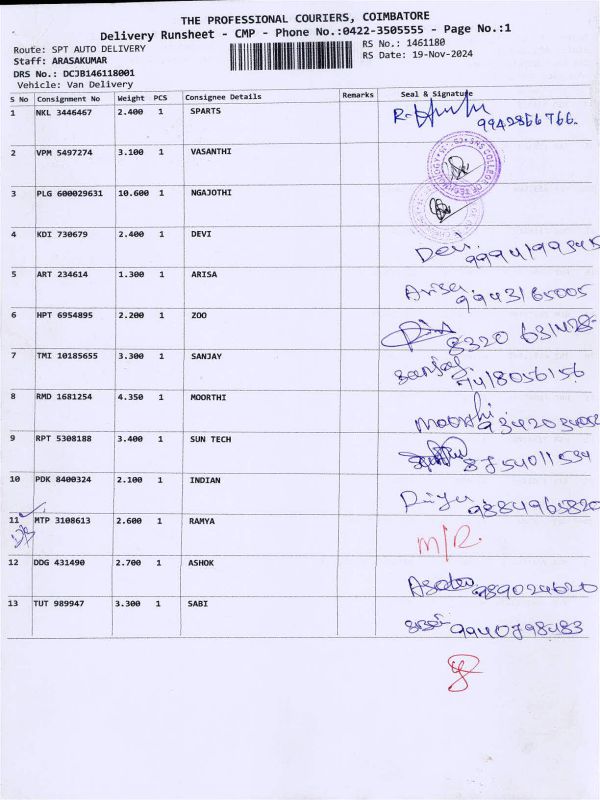 THE PROFESSIONAL COURIERS, COIMBATORE
Delivery Runsheet - CMP - Phone No.:0422-3505555 - Page No.:1
Route: SPT AUTO DELIVERY
RS No.: 1461180
Staff: ARASAKUMAR
RS Date: 19-Nov-2024
DRS No.: DCJB146118001
Vehicle: Van Delivery
S No Consignment No Weight PCS Consignee Details Remarks Seal & Signature
1 NKL 3446467 2.400 1 SPARTS 9942866766.
2 VPM 5497274 3.100 1 VASANTHI
3 PLG 600029631 10.600 1 NGAJOTHI
4 KDI 730679 2.400 1 DEVI Devi.
5 ART 234614 1.300 1 ARISA Arisa 9943165005
6 HPT 6954895 2.200 1 ZOO 8320 631428
7 TMI 10185655 3.300 1 SANJAY Sanjay 7418056156
8 RMD 1681254 4.350 1 MOORTHI Moorthi
9 RPT 5308188 3.400 1 SUN TECH 8754011534
10 PDK 8400324 2.100 1 INDIAN 9884965820
11 MTP 3108613 2.600 1 RAMYA M/R.
12 DDG 431490 2.700 1 ASHOK 989024620
13 TUT 989947 3.300 1 SABI 9940798483